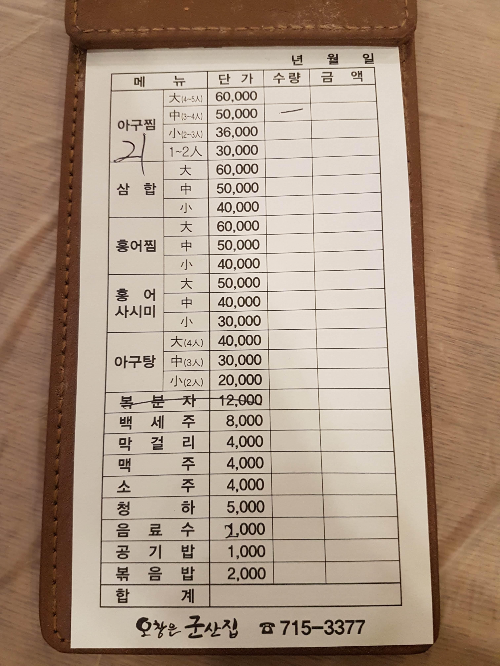 년 월 일
메 뉴 단 가 수량 금 액
아구찜 大(4~5人) 60,000
中(3~4人) 50,000 一
小(2~3人) 36,000
1~2人 30,000
삼 합 大 60,000
中 50,000
小 40,000
홍어찜 大 60,000
中 50,000
小 40,000
홍 어 사시미 大 50,000
中 40,000
小 30,000
아구탕 大(4人) 40,000
中(3人) 30,000
小(2人) 20,000
복 분 자 12,000
백 세 주 8,000
막 걸 리 4,000
맥 주 4,000
소 주 4,000
청 하 5,000
음 료 수 ,000
공 기 밥 1,000
볶 음 밥 2,000
합 계
오창은 군산집 ☎715-3377